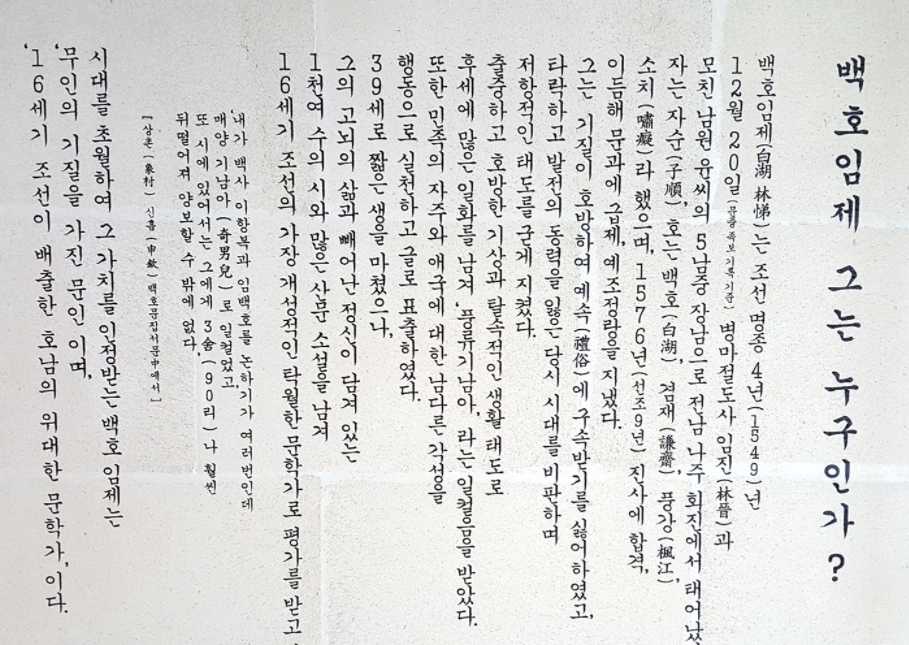 백호임제 그는 누구인가?
백호임제(白湖 林悌)는 조선 명종 4년(1549)년
12월 20일(문중족보기록기준) 병마절도사 임진(林晉)과
모친 남원 윤씨의 5남중 장남으로 전남 나주 회진에서 태어났
자는 자순(子順) 호는 백호(白湖), 겸재(謙齋), 풍강(楓江),
소치(嘯癡)라 했으며, 1576년(선조9년) 진사에 합격,
이듬해 문과에 급제, 예조정랑을 지냈다.
그는 기질이 호방하여 예속(禮俗)에 구속받기를 싫어하였고,
타락하고 발전의 동력을 잃은 당시 시대를 비판하며
저항적인 태도를 굳게 지켰다.
출중하고 호방한 기상과 탈속적인 생활 태도로
후세에 많은 일화를 남겨 '풍류기남아, 라는 일컬음을 받았다.
또한 민족의 자주와 애국에 대한 남다른 각성을
행동으로 실천하고 글로 표출하였다.
39세로 짧은 생을 마쳤으나,
그의 고뇌의 삶과 빼어난 정신이 담겨 있는
1천여 수의 시와 많은 산문 소설을 남겨
16세기 조선의 가장 개성적인 탁월한 문학가로 평가를 받고
'내가 백사 이항복과 임백호를 논하기가 여러번인데
매양 기남아(奇男兒)로 일컬었고,
또 시에 있어서는 그에게 3舍(90리)나 훨씬
뒤떨어져 양보할 수 밖에 없다,
[상촌(象村) 신흠(申欽) 백호문집서문中에서]
시대를 초월하여 그 가치를 인정받는 백호 임제는
'무인의 기질을 가진 문인 이며,
'16세기 조선이 배출한 호남의 위대한 문학가, 이다.